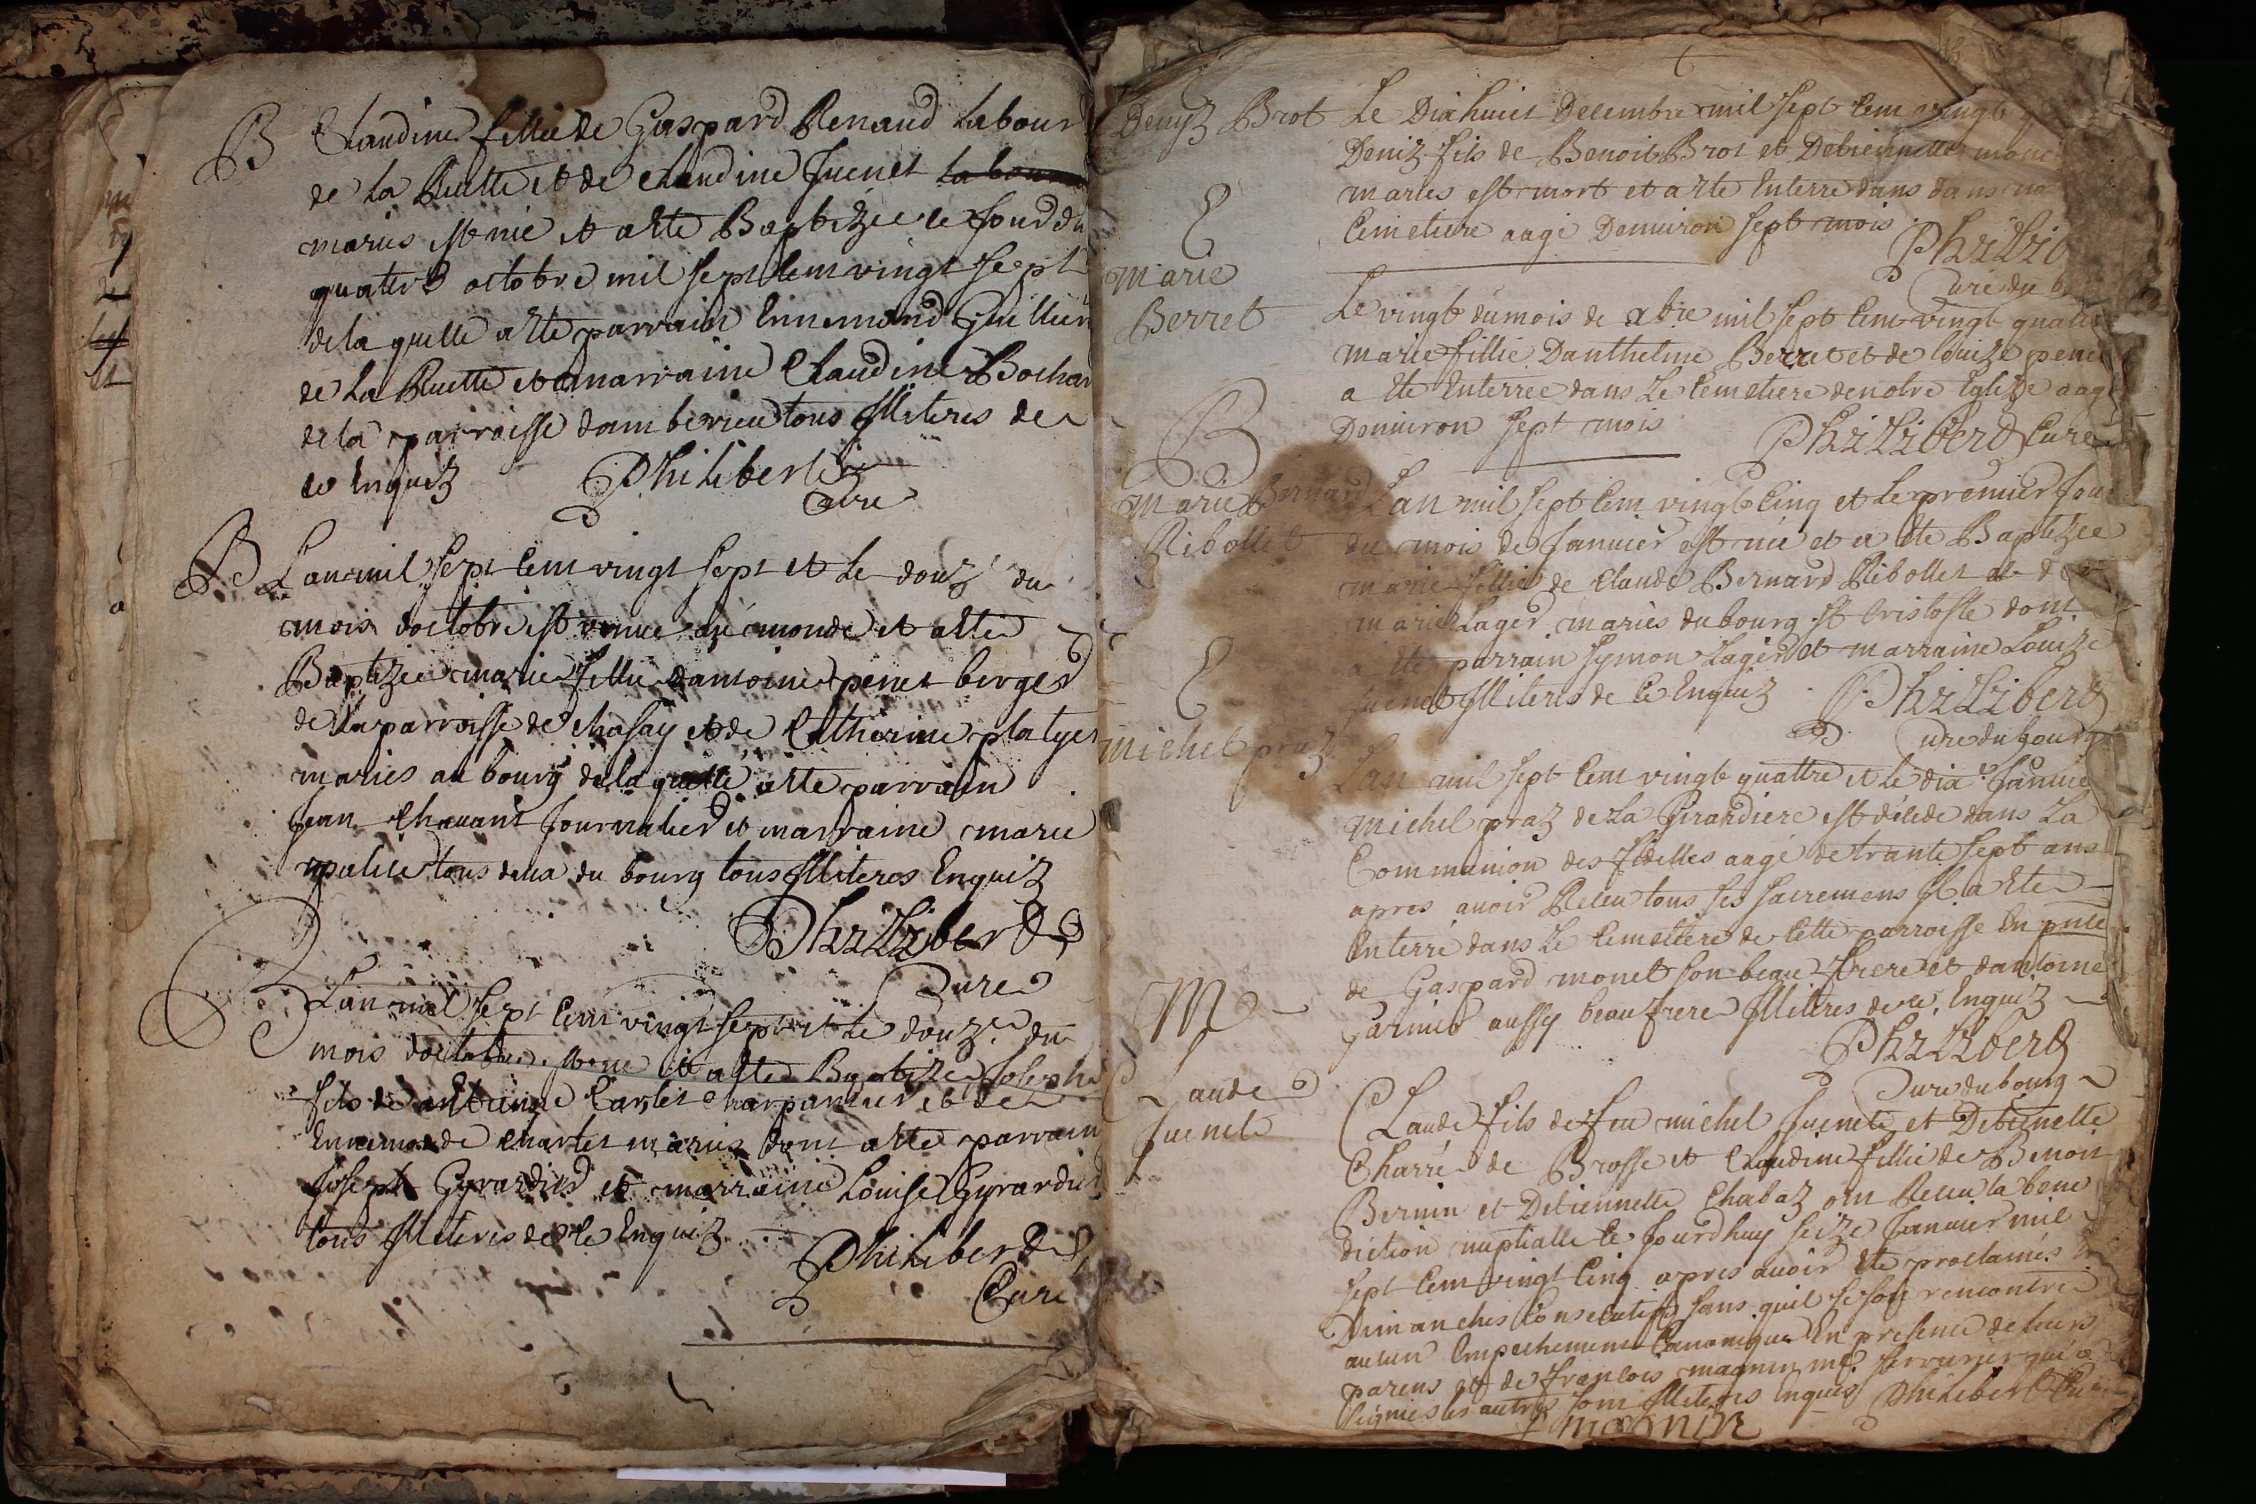 B
Claudine fillie de Gaspard Renaud Labour
de La Ruette et de Claudine Juenet
maries est née et a ete Baptizée ce Jourd
quatere octobre mil sept Cent vingt sept
de la quelle a ete parrain Ennemond
de La Ruette et marraine Claudine Bochar
de la parroisse damberieu tous Illiteres de
ce Enquiz Philibert
Cure
B
Lan mil sept Cent vingt sept et Le douz.e du
mois doctobre est venue au monde et a ete
Baptizée marie fillie dantoine penet berger
de la parroisse de Chasay et de Catherine platyer
maries au bourg de la quelle a ete parrain
Jean Chavant Journalier et marraine marie
tous deux du bourg tous Illiteres Enquiz
Philibert
Cure
B
Lan mil sept Cent vingt sept et le douz.e du
mois doctobre est né et a ete Baptizé Joseph
fils de Carlet Charpantier et de
Ennemonde Charlet maries dont a ete parrain
Joseph Gyrardier et marraine Louise Gyrardier
tous Illiteres de ce Enquiz
Philibert
Cure
Denyz Brot
Le Dixhuict Decembre mil sept Cent vingt
Deniz fils de Benoit Brot et Detiennette
maries est mort et a ete Enterre dans dans
Cemetiere aagé Denuiron sept mois
E
Philib
Curé du b
marie
Berret
Le vingt du mois de xbre mil sept Cent vingt quatre
marie fillie Danthelme Berret et de Louize penet
a ete Enterrée dans Le Cemetiere de notre Eglize aagé
Denuiron sept mois Philibert Cure
B
marie Bernard
Ribollet
Lan mil sept Cent vingt Cinq et Le premier Jour
du mois de Januier est née et a ete Baptizée
marie fillie de Claude Bernard Ribollet et de
marie Lager maries du bourg st Cristofle dont
a ete parrain symon Lager et marraine Louize
Juenet Illiteres de Ce Enquiz Philibert
Cure du bourg
E
michel praz
Lan mil sept Cent vingt quattre et le dix.e Januie
michel praz de La Girardiere est décédé dans La
Communion des fidelles aagé de trante sept ans
apres auoir Receu tous ses sacremens Il a ete
Enterré dans Le Cemettiere de Cette parroisse En pnce
de Gaspard monet son beau frere et dantoine
Garnier aussy beaufrere Illiteres de ce Enquiz
Philibert
Cure du bourg
M
Claude
Juenet
Claude fils de feu michel Juenet et Detiennette
Charré de Brosse et Claudine fillie de Benoit
Bernin et Detiennette Chabaz ont Receu la bene
diction nuptialle Ce Jourdhuy seize Januier mil
sept Cent vingt Cinq apres auoir ete proclamés
Dimanches Consecutifs sans quil se soit rencontré
aucun Empechement Canonique En presence de leurs
parens et de francois magnin me serrurier qui a
signé les autres sont Illiteres Enquis Philibert Cure
magnin